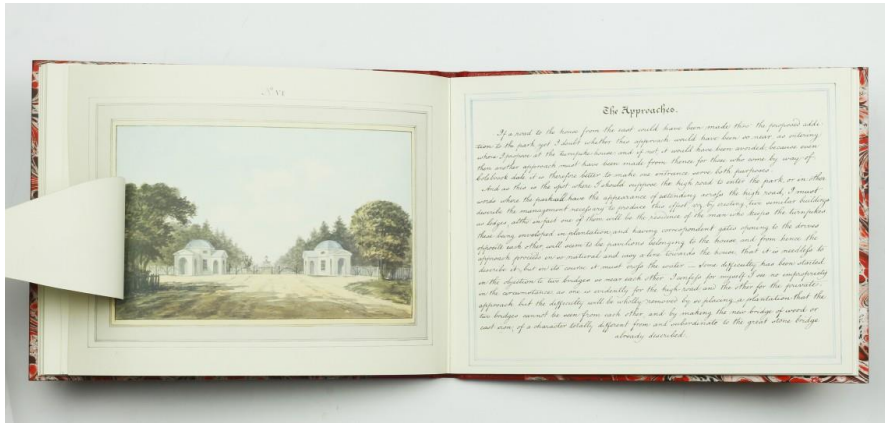 Nº VI
The Approaches.
If a road to the house from the east could have been made thro' the proposed addi-
tion to the park, yet I doubt whether this approach would have been so near, as entering
where I propose at the turnpike-house: and if not, it would have been avoided, because even
then another approach must have been made from thence for those who come by way of
Colebrook dale it is therefore better to make one entrance serve both purposes.
And as this is the spot where I should suppose the high road to enter the park, or in other
words where the park will have the appearance of extending across the high road, I must
describe the management necessary to produce this effect viz. by erecting two similar buildings
as lodges, altho' in fact one of them will be the residence of the man who keeps the turnpike:
these being enveloped in plantation, and having correspondent gates opening to the drives
opposite each other, will seem to be pavilions belonging to the house, and from hence the
approach proceeds in so natural and easy a line towards the house, that it is needless to
describe it; but as its course it must cross the water — Some difficulty has been started
on the objection to two bridges so near each other. I confess for myself I see no impropriety
in the circumstance, as one is evidently for the high road and the other for the private
approach but the difficulty will be wholly removed by so placing a plantation that the
two bridges cannot be seen from each other, and by making the new bridge of wood or
cast iron, of a character totally different from and subordinate to the great stone bridge
already described.